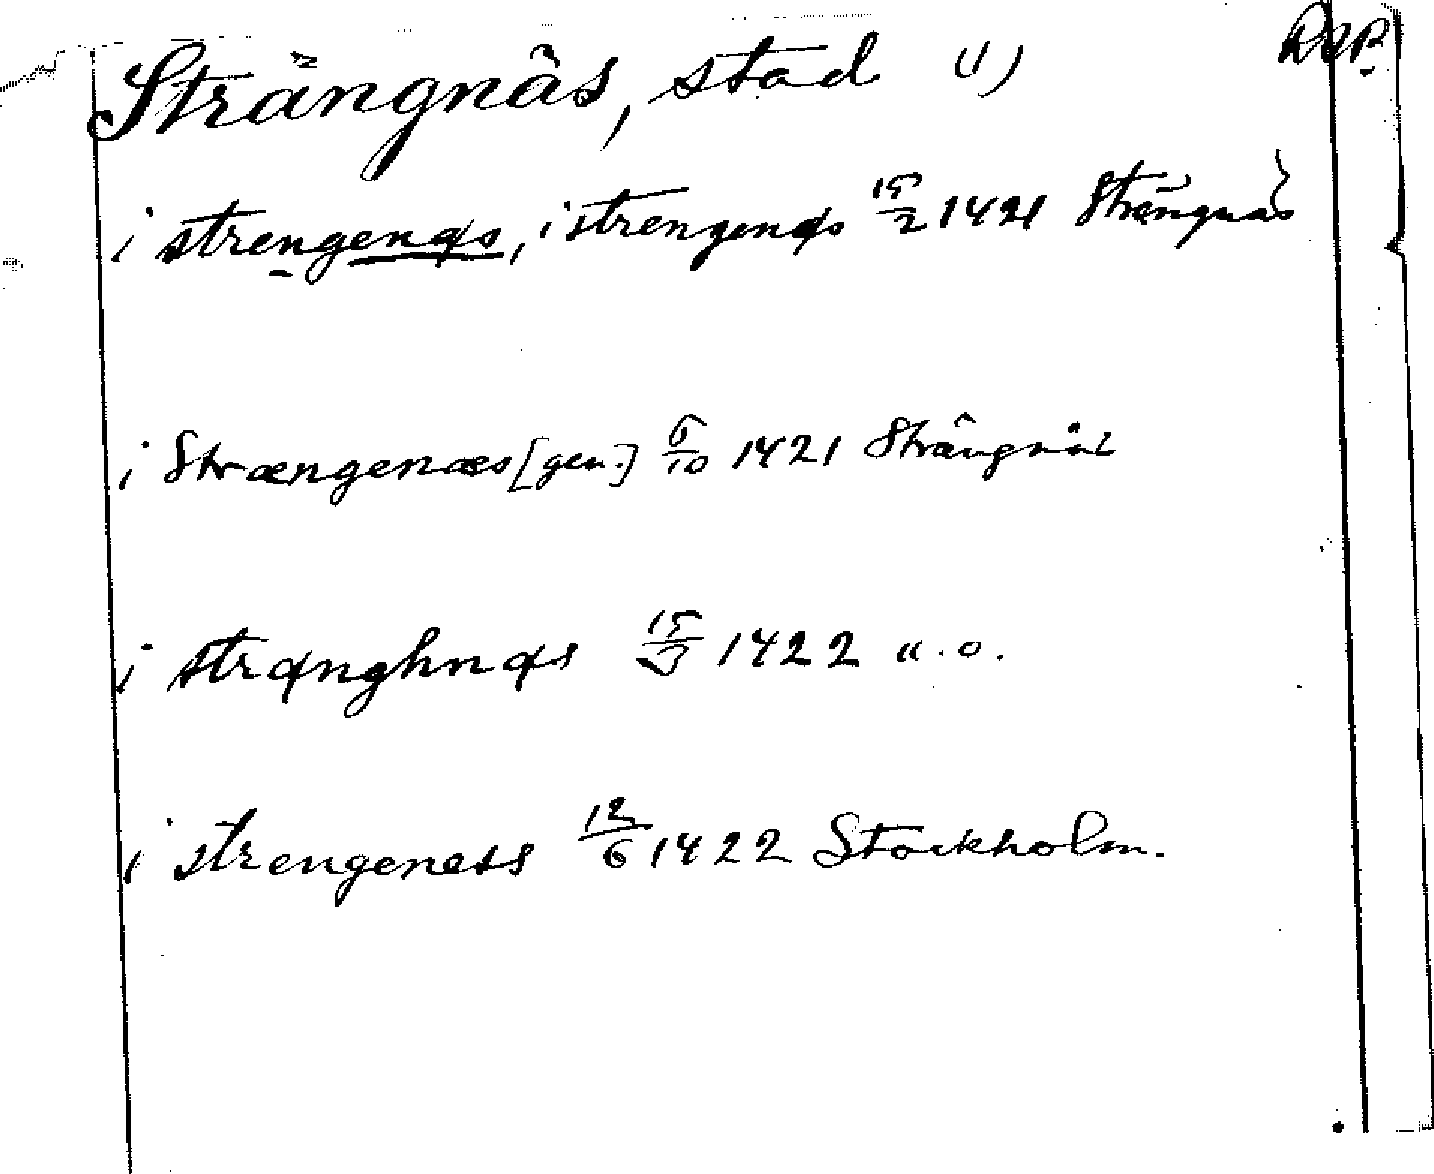 Strängnäs, stad 1) DRP.
i strengenæs, i strengenæs 15/2 1421 Strängnäs
i Strængenæs [gen.] 6/10 1421 Strängnäs
i strænghnæs 15/3 1422 u.o.
i strengeness 12/6 1422 Stockholm.